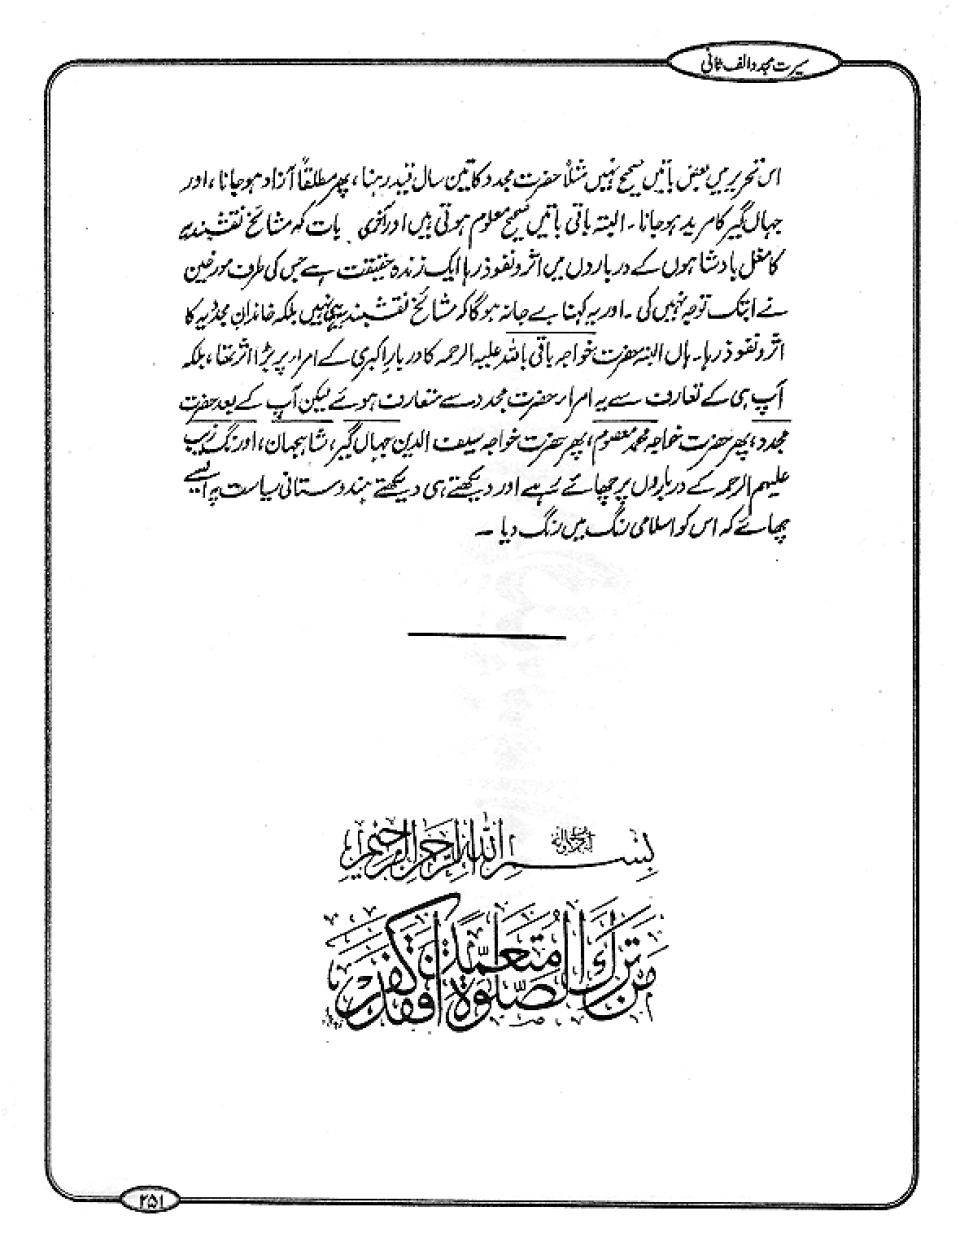 سیرت مجدد الف ثانی
اس تحریر میں بعض باتیں صحیح نہیں مثلاً حضرت مجدد کا تین سال قید رہنا، پھر مطلقاً آزاد ہوجانا، اور
جہاں گیر کا مرید ہوجانا۔ البتہ باقی باتیں صحیح معلوم ہوتی ہیں اور آخری بات کہ مشائخ نقشبندیہ
کا مغل بادشاہوں کے درباروں میں اثر و نفوذ رہا ایک زندہ حقیقت ہے جس کی طرف مورخین
نے ابتک توجہ نہیں کی۔ اور یہ کہنا بے جا نہ ہوگا کہ مشائخ نقشبندیہ ہی نہیں بلکہ خاندانِ مجدّیہ کا
اثر و نفوذ رہا۔ ہاں البتہ حضرت خواجہ باقی باللہ علیہ الرحمہ کا دربارِ اکبری کے امرار پر بڑا اثر تھا، بلکہ
آپ ہی کے تعارف سے یہ امرار حضرت مجدد سے متعارف ہوئے لیکن آپ کے بعد حضرت
مجدد، پھر حضرت خواجہ محمد معصوم، پھر حضرت خواجہ سیف الدین جہاں گیر، شاہجہان، اورنگ زیب
علیہم الرحمہ کے درباروں پر چھائے رہے اور دیکھتے ہی دیکھتے ہندوستانی سیاست پر ایسے
چھائے کہ اس کو اسلامی رنگ میں رنگ دیا ۔
بسم اللہ الرحمن الرحیم
من ترك الصلوة متعمدا فقد كفر
۲۵۱